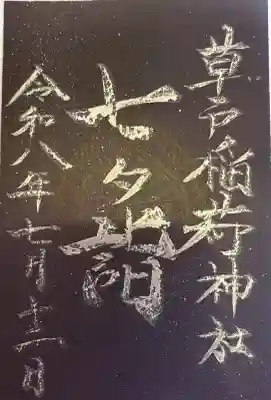 草戸稲荷神社
七夕詣
令和八年七月十一日